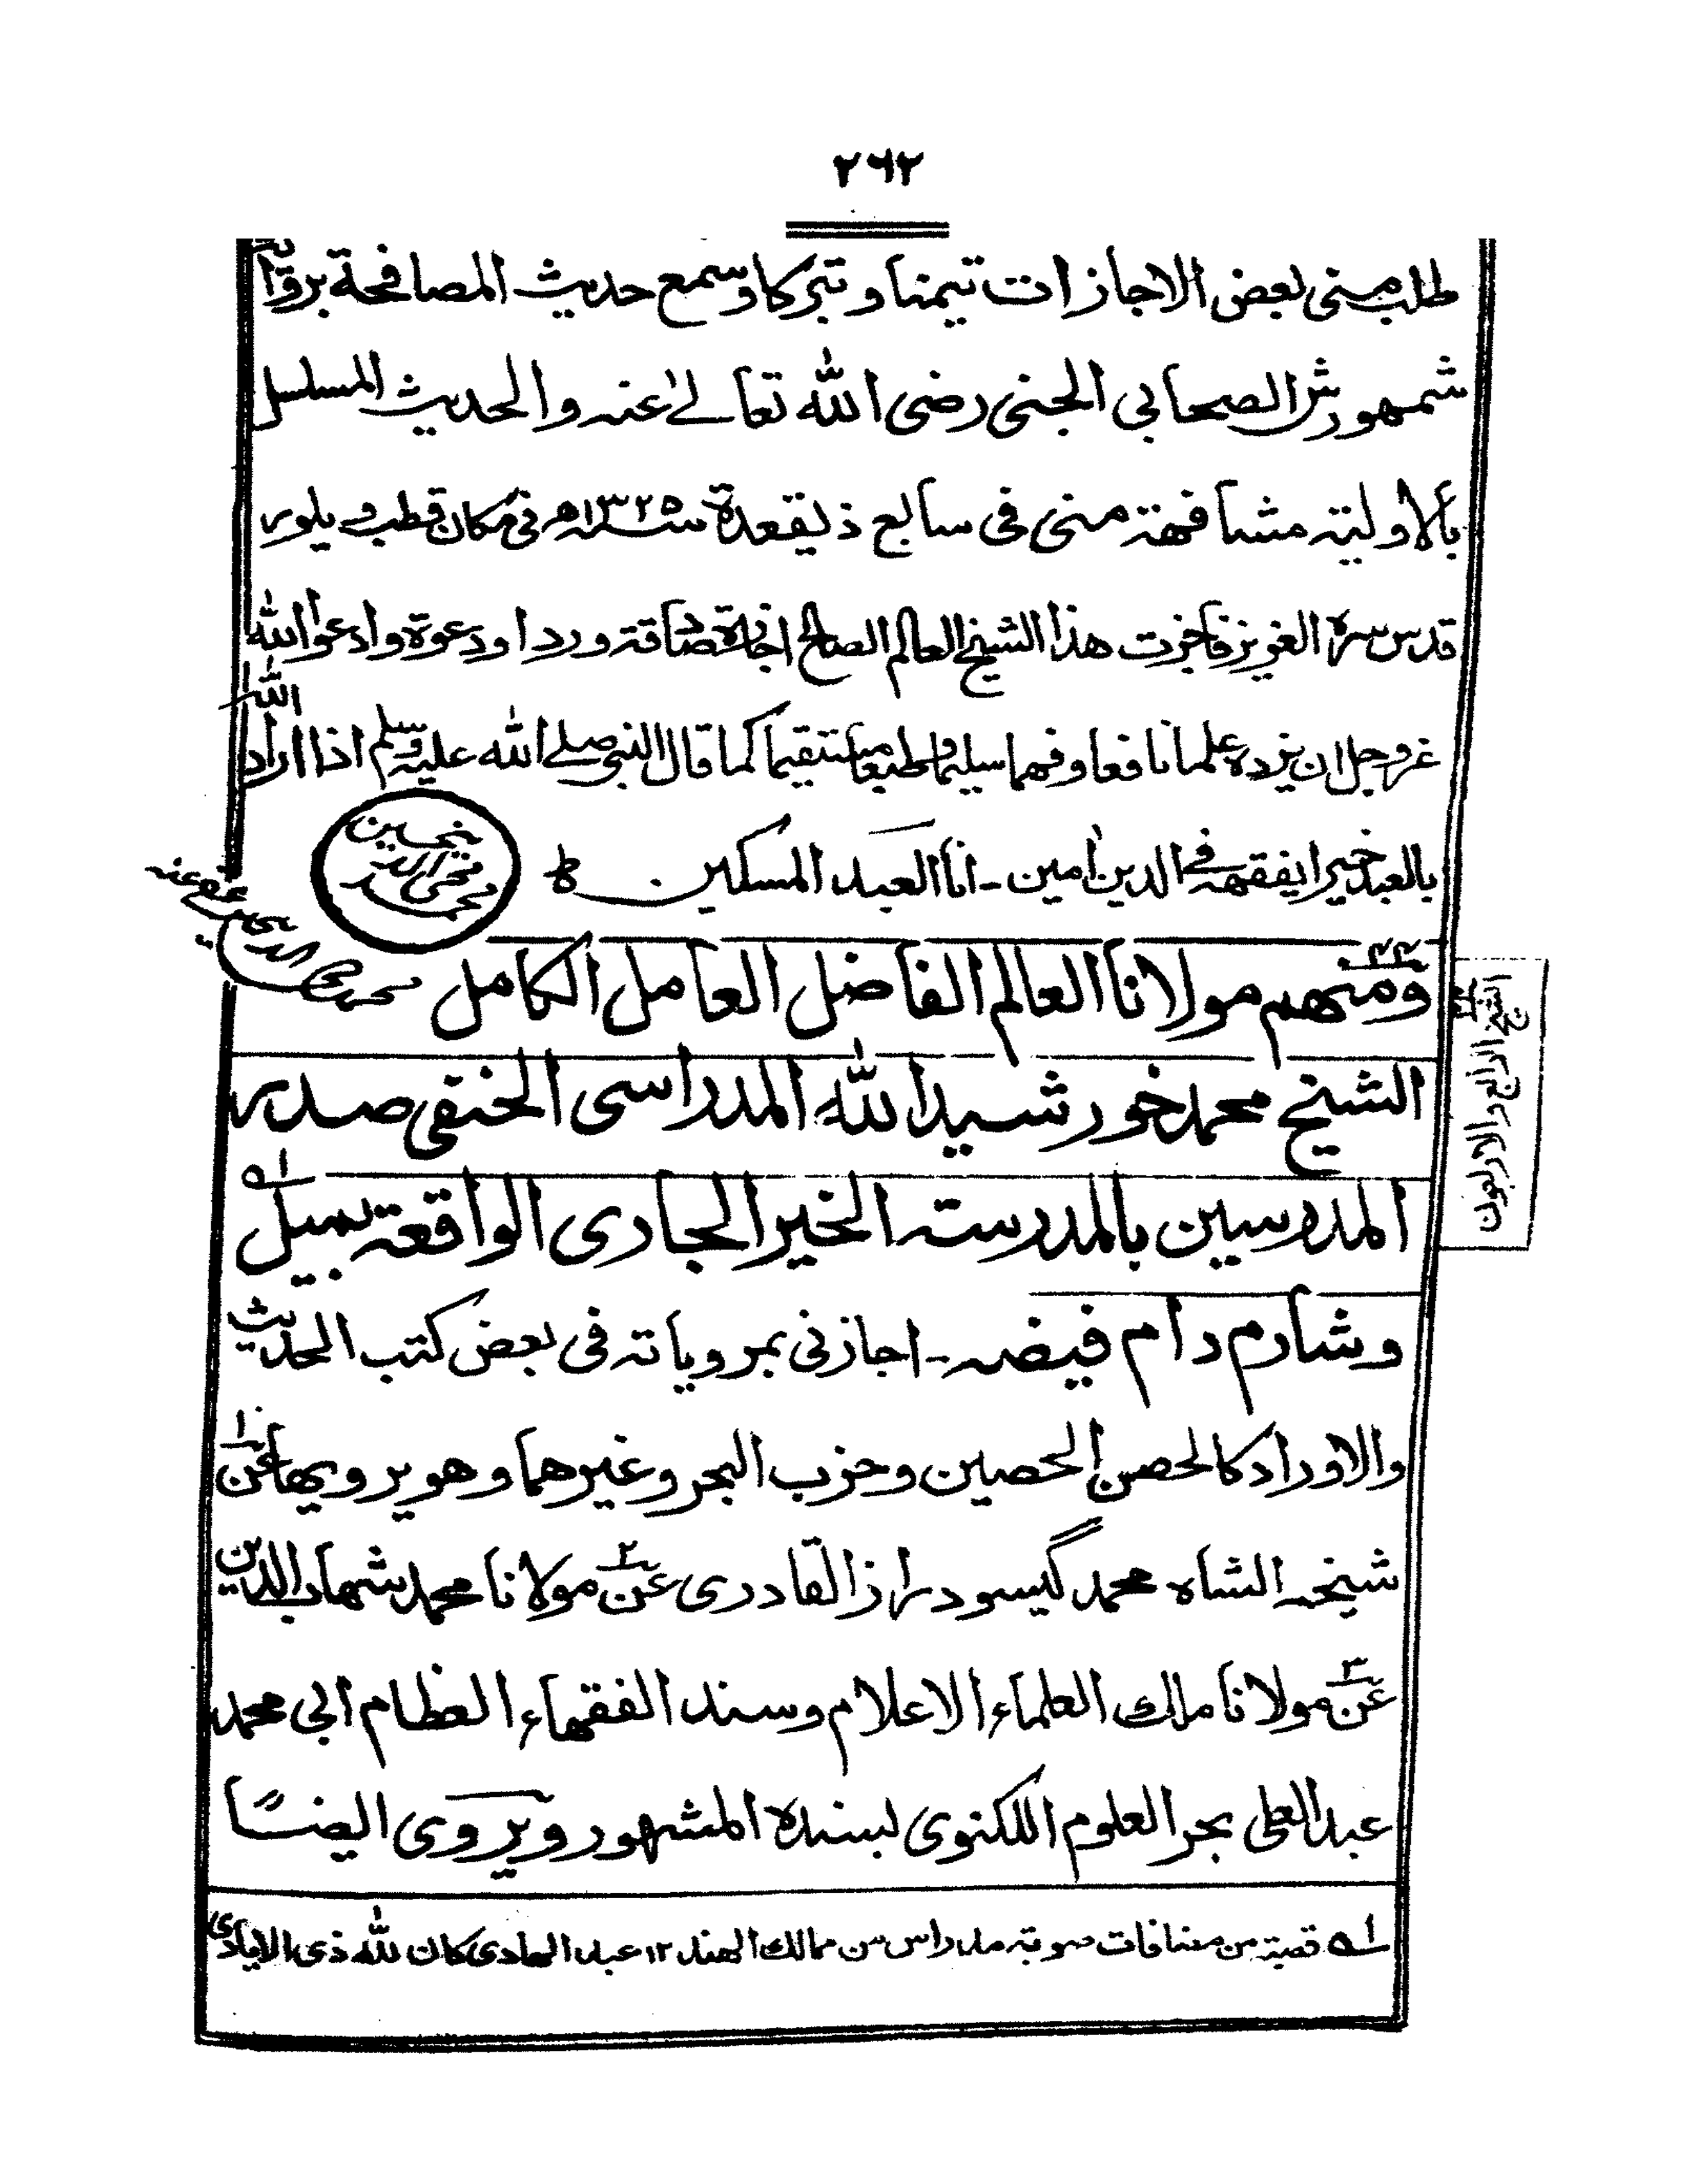 ٢٦٢
طلب منى بعض الاجازات تيمنا و تبركا وسمع حديث المصافحة برواية
شمهورش الصحابي الجنى رضى الله تعالے عنه والحديث المسلسل
بالاولية مشافهة منى فى سابع ذيقعدة سنه ١٣٢٥ه فى مكان قطب ويلور
قدس سره العزيز فاجزت هذا الشيخ العالم الصالح اجازة صادقة وردا ودعوة وادعوا الله
عزوجل ان يزده علما نافعا وفهما سليما وطبعا مستقيما كما قال النبى صلے الله عليه وسلم اذا اراد الله
بالعبد خيرا يفقهه فے الدين امين - انا العبد المسكين
محمد محى الدين حسين
محمد محى الدين حسين عفى عنه
٤٤ ومنهم مولانا العالم الفاضل العامل الكامل
الشيخ الرابع والاربعون
الشيخ محمد خورشيد الله المدراسى الحنفى صدر
المدرسين بالمدرسة الخير الجارى الواقعة بميل ١ه
وشارم دام فيضه - اجازنى بمروياته فى بعض كتب الحديث
والاوراد كالحصن الحصين وحزب البحر وغيرهما وهو يرويها عن ١
شيخه الشاه محمد گيسودراز القادرى عن ٢ مولانا محمد شهاب الدين
عن ٣ مولانا مالك العلماء الاعلام وسند الفقهاء العظام ابى محمد
عبد العلى بحر العلوم اللكنوى بسنده المشهور ويروى ايضًا
١ه قصبة من مضافات صوبة مدراس من ممالك الهند ١٢ عبد الهادى كان لله ذى الايادى